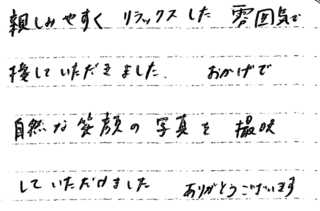 親しみやすく リラックスした 雰囲気で
接していただきました. おかげで
自然な笑顔の写真を 撮映
していただけました ありがとうございます